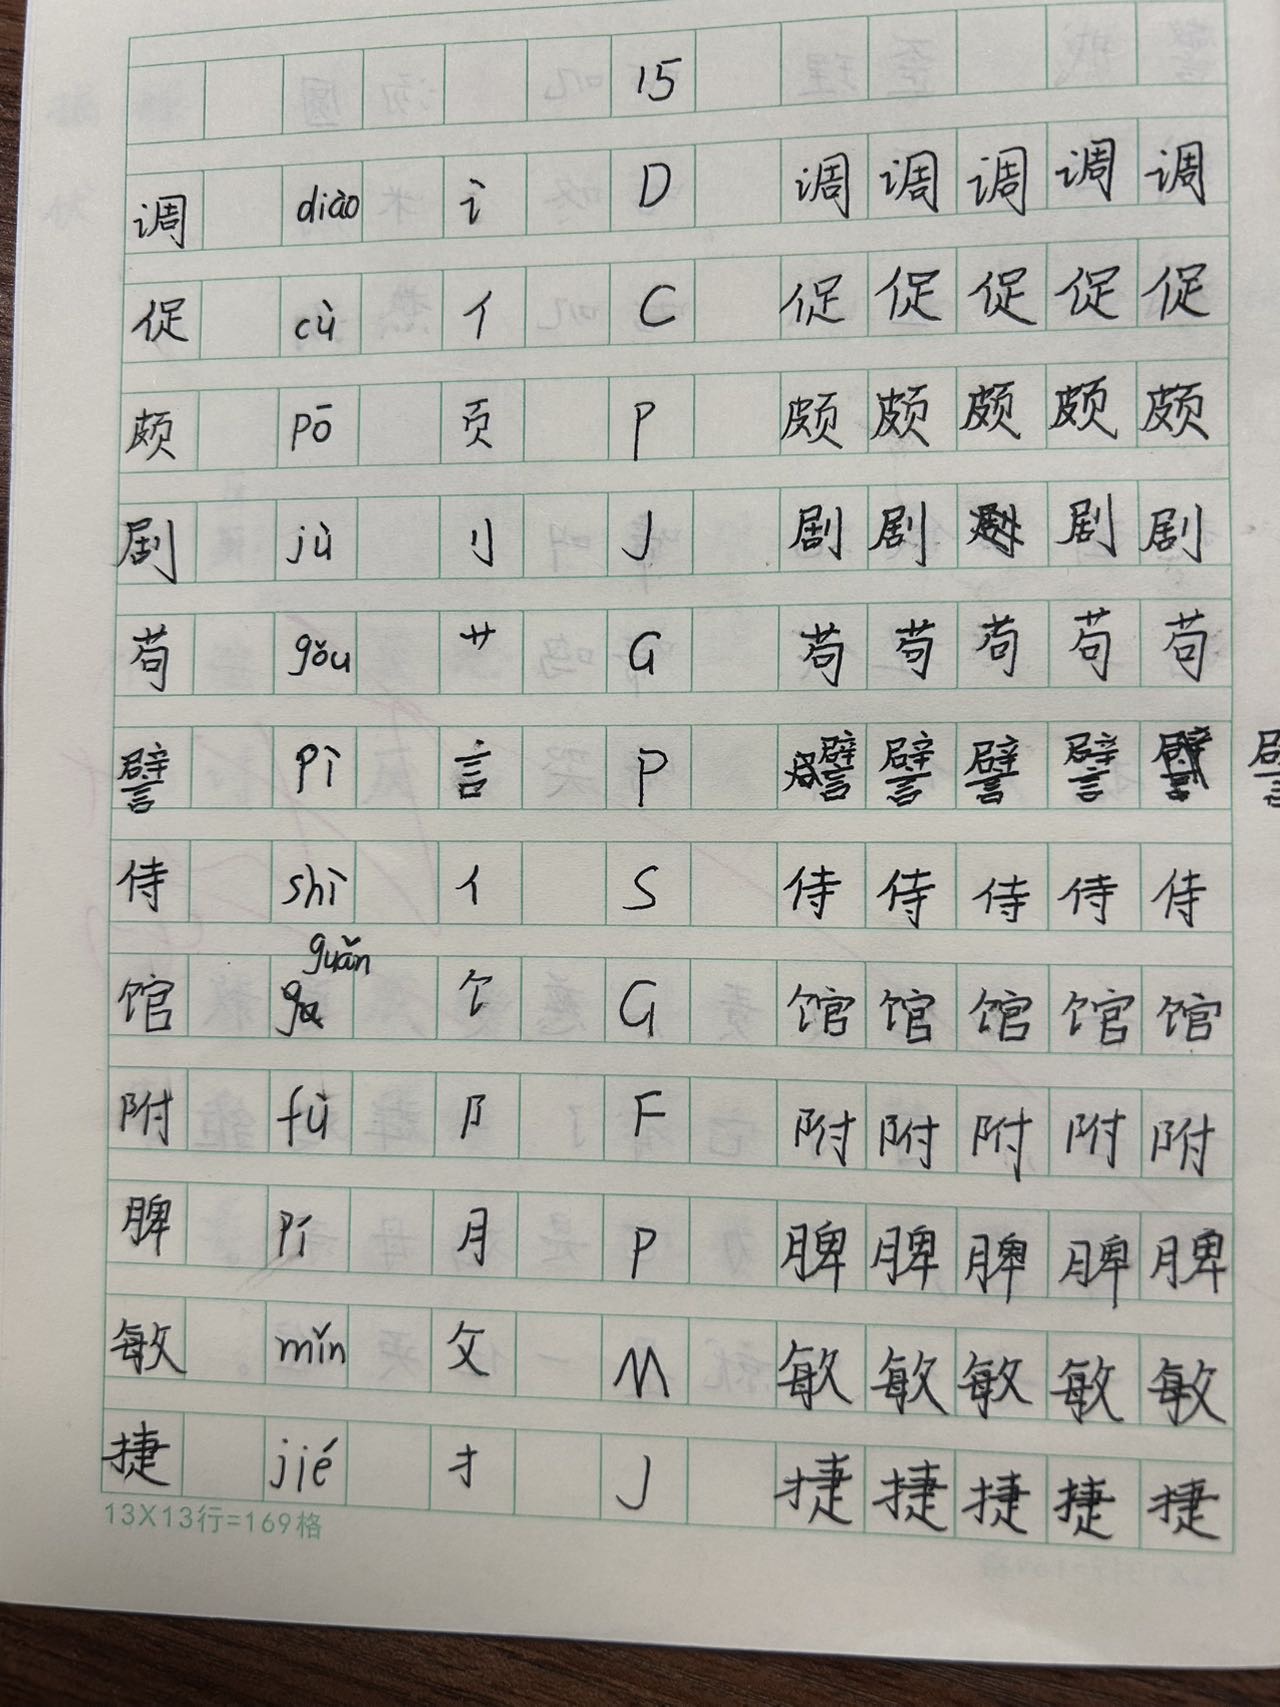 15
调 diào 讠 D 调 调 调 调 调
促 cù 亻 C 促 促 促 促 促
颇 pō 页 P 颇 颇 颇 颇 颇
剧 jù 刂 J 剧 剧 剧 剧
苟 gǒu 艹 G 苟 苟 苟 苟 苟
譬 pì 言 P 譬 譬 譬 譬 譬
侍 shì 亻 S 侍 侍 侍 侍 侍
馆 guǎn 饣 G 馆 馆 馆 馆 馆
附 fù 阝 F 附 附 附 附 附
脾 pí 月 P 脾 脾 脾 脾 脾
敏 mǐn 攵 M 敏 敏 敏 敏 敏
捷 jié 扌 J 捷 捷 捷 捷 捷
13X13行=169格